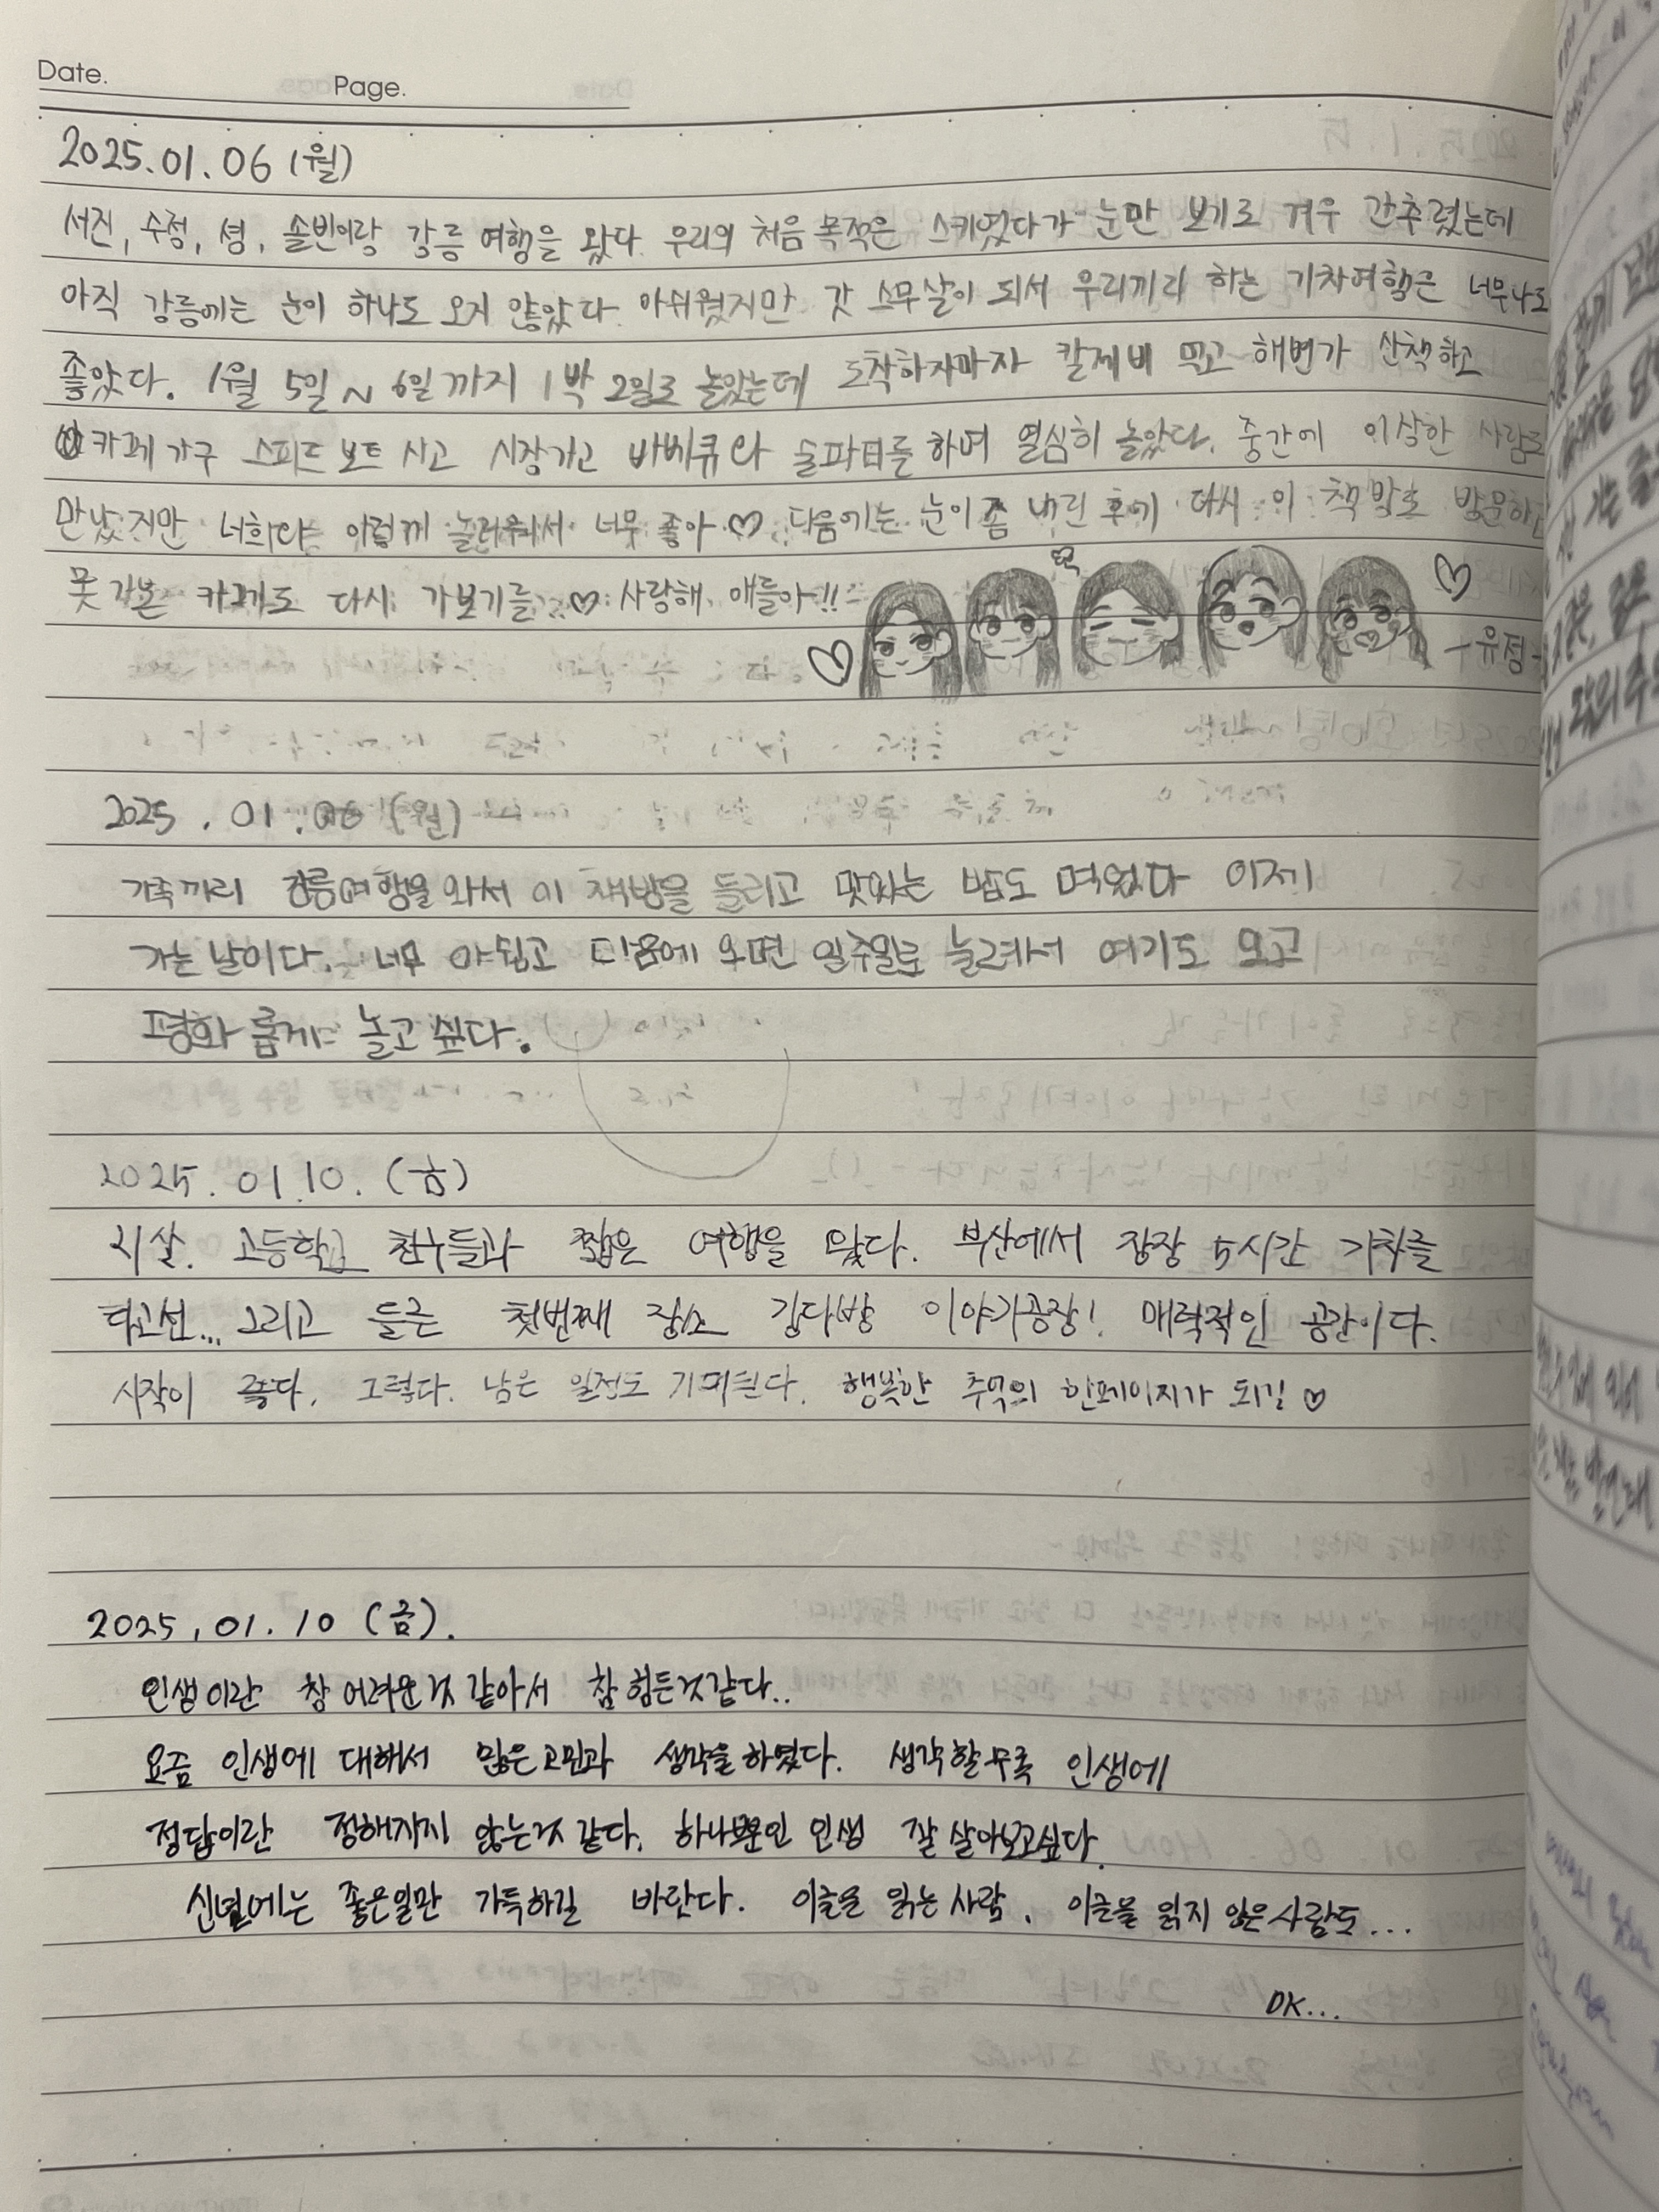 Date.
Page.
2025.01.06 (월)
서진, 수정, 셩, 솔빈이랑 강릉 여행을 왔다. 우리의 처음 목적은 스키였다가 눈만 보기로 겨우 간추렸는데
아직 강릉에는 눈이 하나도 오지 않았다. 아쉬웠지만 갓 스무살이 되서 우리끼리 하는 기차여행은 너무나도
좋았다. 1월 5일 ~ 6일까지 1박 2일로 놀았는데 도착하자마자 칼제비 먹고 해변가 산책하고
카페가구 스피드 보트 사고 시장가고 바베큐와 술파티를 하며 열심히 놀았다. 중간에 이상한 사람도
만났지만 너희랑 이렇게 놀러와서 너무 좋아 ♡ 다음에는 눈이 좀 내린 후에 다시 이 책방도 방문하고
못 가본 카페도 다시 가보기를.. ♡ 사랑해 애들아!!
-유정-
2025 . 01 . 06 (월)
가족끼리 강릉여행을 와서 이 책방을 들리고 맛있는 밥도 먹었다 이제
가는 날이다. 너무 아쉽고 다음에 오면 일주일로 늘려서 여기도 오고
평화롭게 놀고 싶다.
2025. 01.10. (금)
21살. 고등학교 친구들과 짧은 여행을 왔다. 부산에서 장장 5시간 기차를
타고선... 그리고 들른 첫번째 장소 강다방 이야기공장! 매력적인 공간이다.
시작이 좋다. 그렇다. 남은 일정도 기대된다. 행복한 추억의 한페이지가 되길 ♡
2025. 01. 10 (금).
인생이란 참 어려운것 같아서 참 힘든것같다..
요즘 인생에 대해서 많은고민과 생각을하였다. 생각할수록 인생에
정답이란 정해지지 않는것 같다. 하나뿐인 인생 잘 살아보고싶다.
신년에는 좋은일만 가득하길 바란다. 이글을 읽는 사람, 이글을 읽지 않은사람도...
OK...